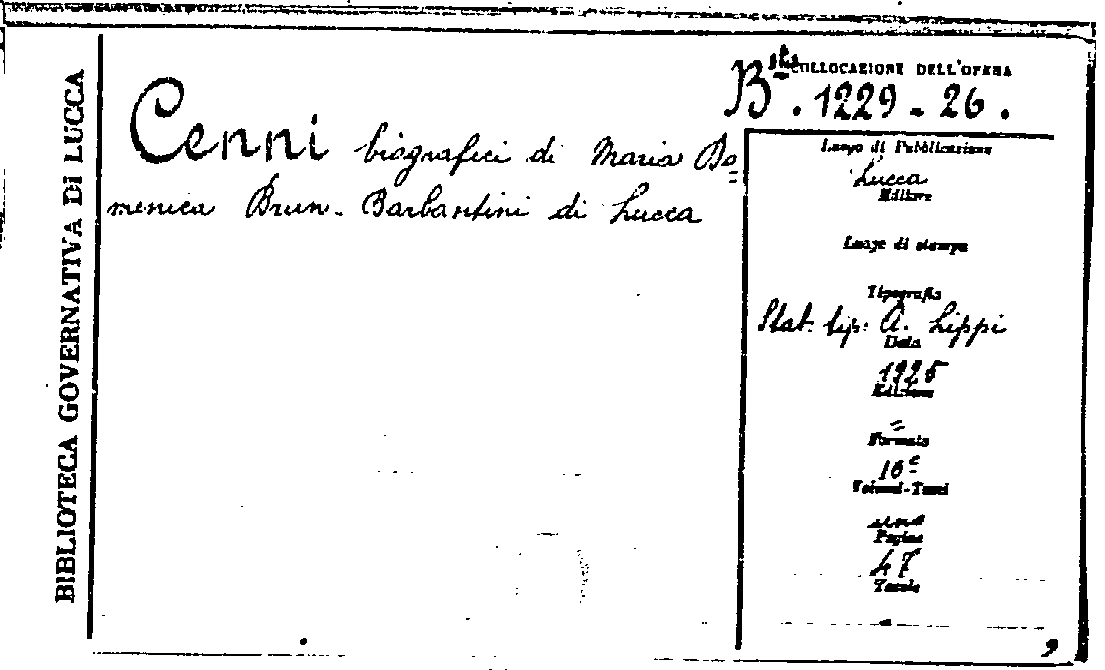 BIBLIOTECA GOVERNATIVA DI LUCCA
Cenni biografici di Maria Do=
menica Brun-Barbantini di Lucca
COLLOCAZIONE DELL'OPERA
Bta. 1229-26.
Luogo di Pubblicazione
Lucca
Editore
Luogo di stampa
Tipografia
Stab. tip. A. Lippi
Data
1925
Edizione
=
Formato
16°
Volumi-Tomi
uno
Pagine
47
Tavole